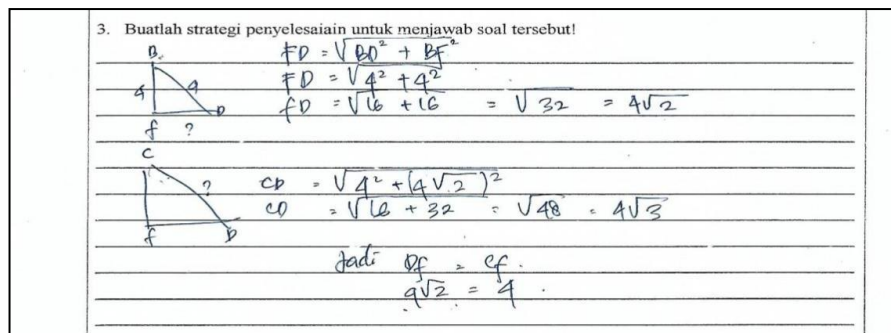 3. Buatlah strategi penyelesaiain untuk menjawab soal tersebut!
B
FD = √BD² + BF²
4 4 D
FD = √4² + 4²
f ?
fD = √16 + 16 = √32 = 4√2
C
?
CD = √4² + (4√2)²
CD = √16 + 32 = √48 = 4√3
f D
Jadi Df = Cf.
4√2 = 4.